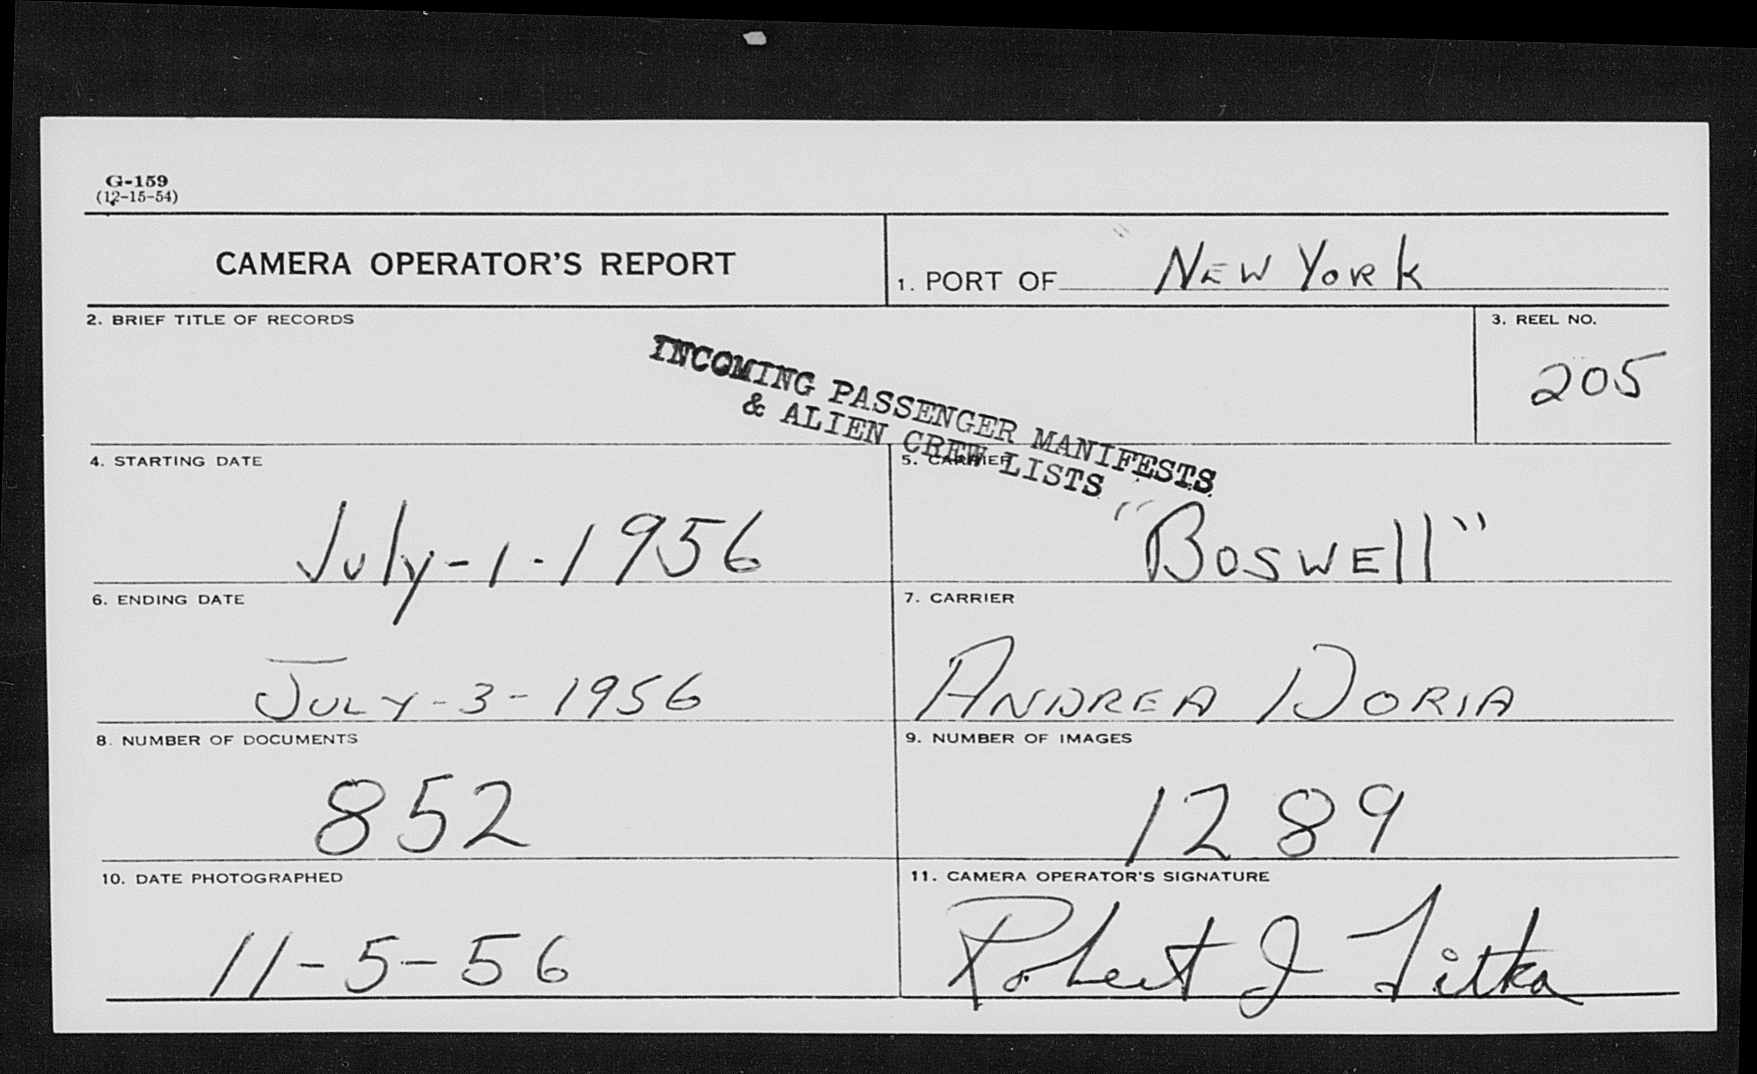 G-159
(12-15-54)
CAMERA OPERATOR'S REPORT
1. PORT OF NEW YORK
2. BRIEF TITLE OF RECORDS
INCOMING PASSENGER MANIFESTS
& ALIEN CREW LISTS
3. REEL NO.
205
4. STARTING DATE
July-1-1956
5. CARRIER
"BOSWELL"
6. ENDING DATE
JULY-3-1956
7. CARRIER
ANDREA DORIA
8. NUMBER OF DOCUMENTS
852
9. NUMBER OF IMAGES
1289
10. DATE PHOTOGRAPHED
11-5-56
11. CAMERA OPERATOR'S SIGNATURE
Robert J